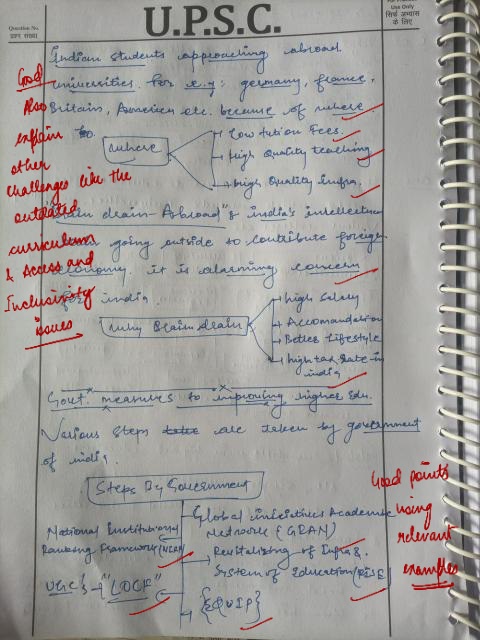 U.P.S.C.
Question No.
प्रश्न संख्या
Use Only
सिर्फ अभ्यास
के लिए
Indian students approaching abroad
universities. for e.g: germany, france,
Britain, America etc. because of where
to.
where
Low tution Fees.
High Quality teaching
High Quality infra.
Good
Also
explain
other
challenges like the
outdated
curriculum
& Access and
Inclusivity
issues
drain - Abroad" & india's intellectual
going outside to contribute foreign
economy. it is alarming concern
for india.
why Brain drain
High Salary
Accomandation
Better Lifestyle
high tax rate in
india
Govt. measures to improving higher Edu.
Various steps are taken by government
of india.
Steps By Government
National Institutional
Ranking Framework (NIRF)
UGC's → "LOCF"
Global initiatives Academic
Network (GIAN)
Revitalizing of Infra &
System of Education (RISE)
{EQUIP}
Good points
using
relevant
examples